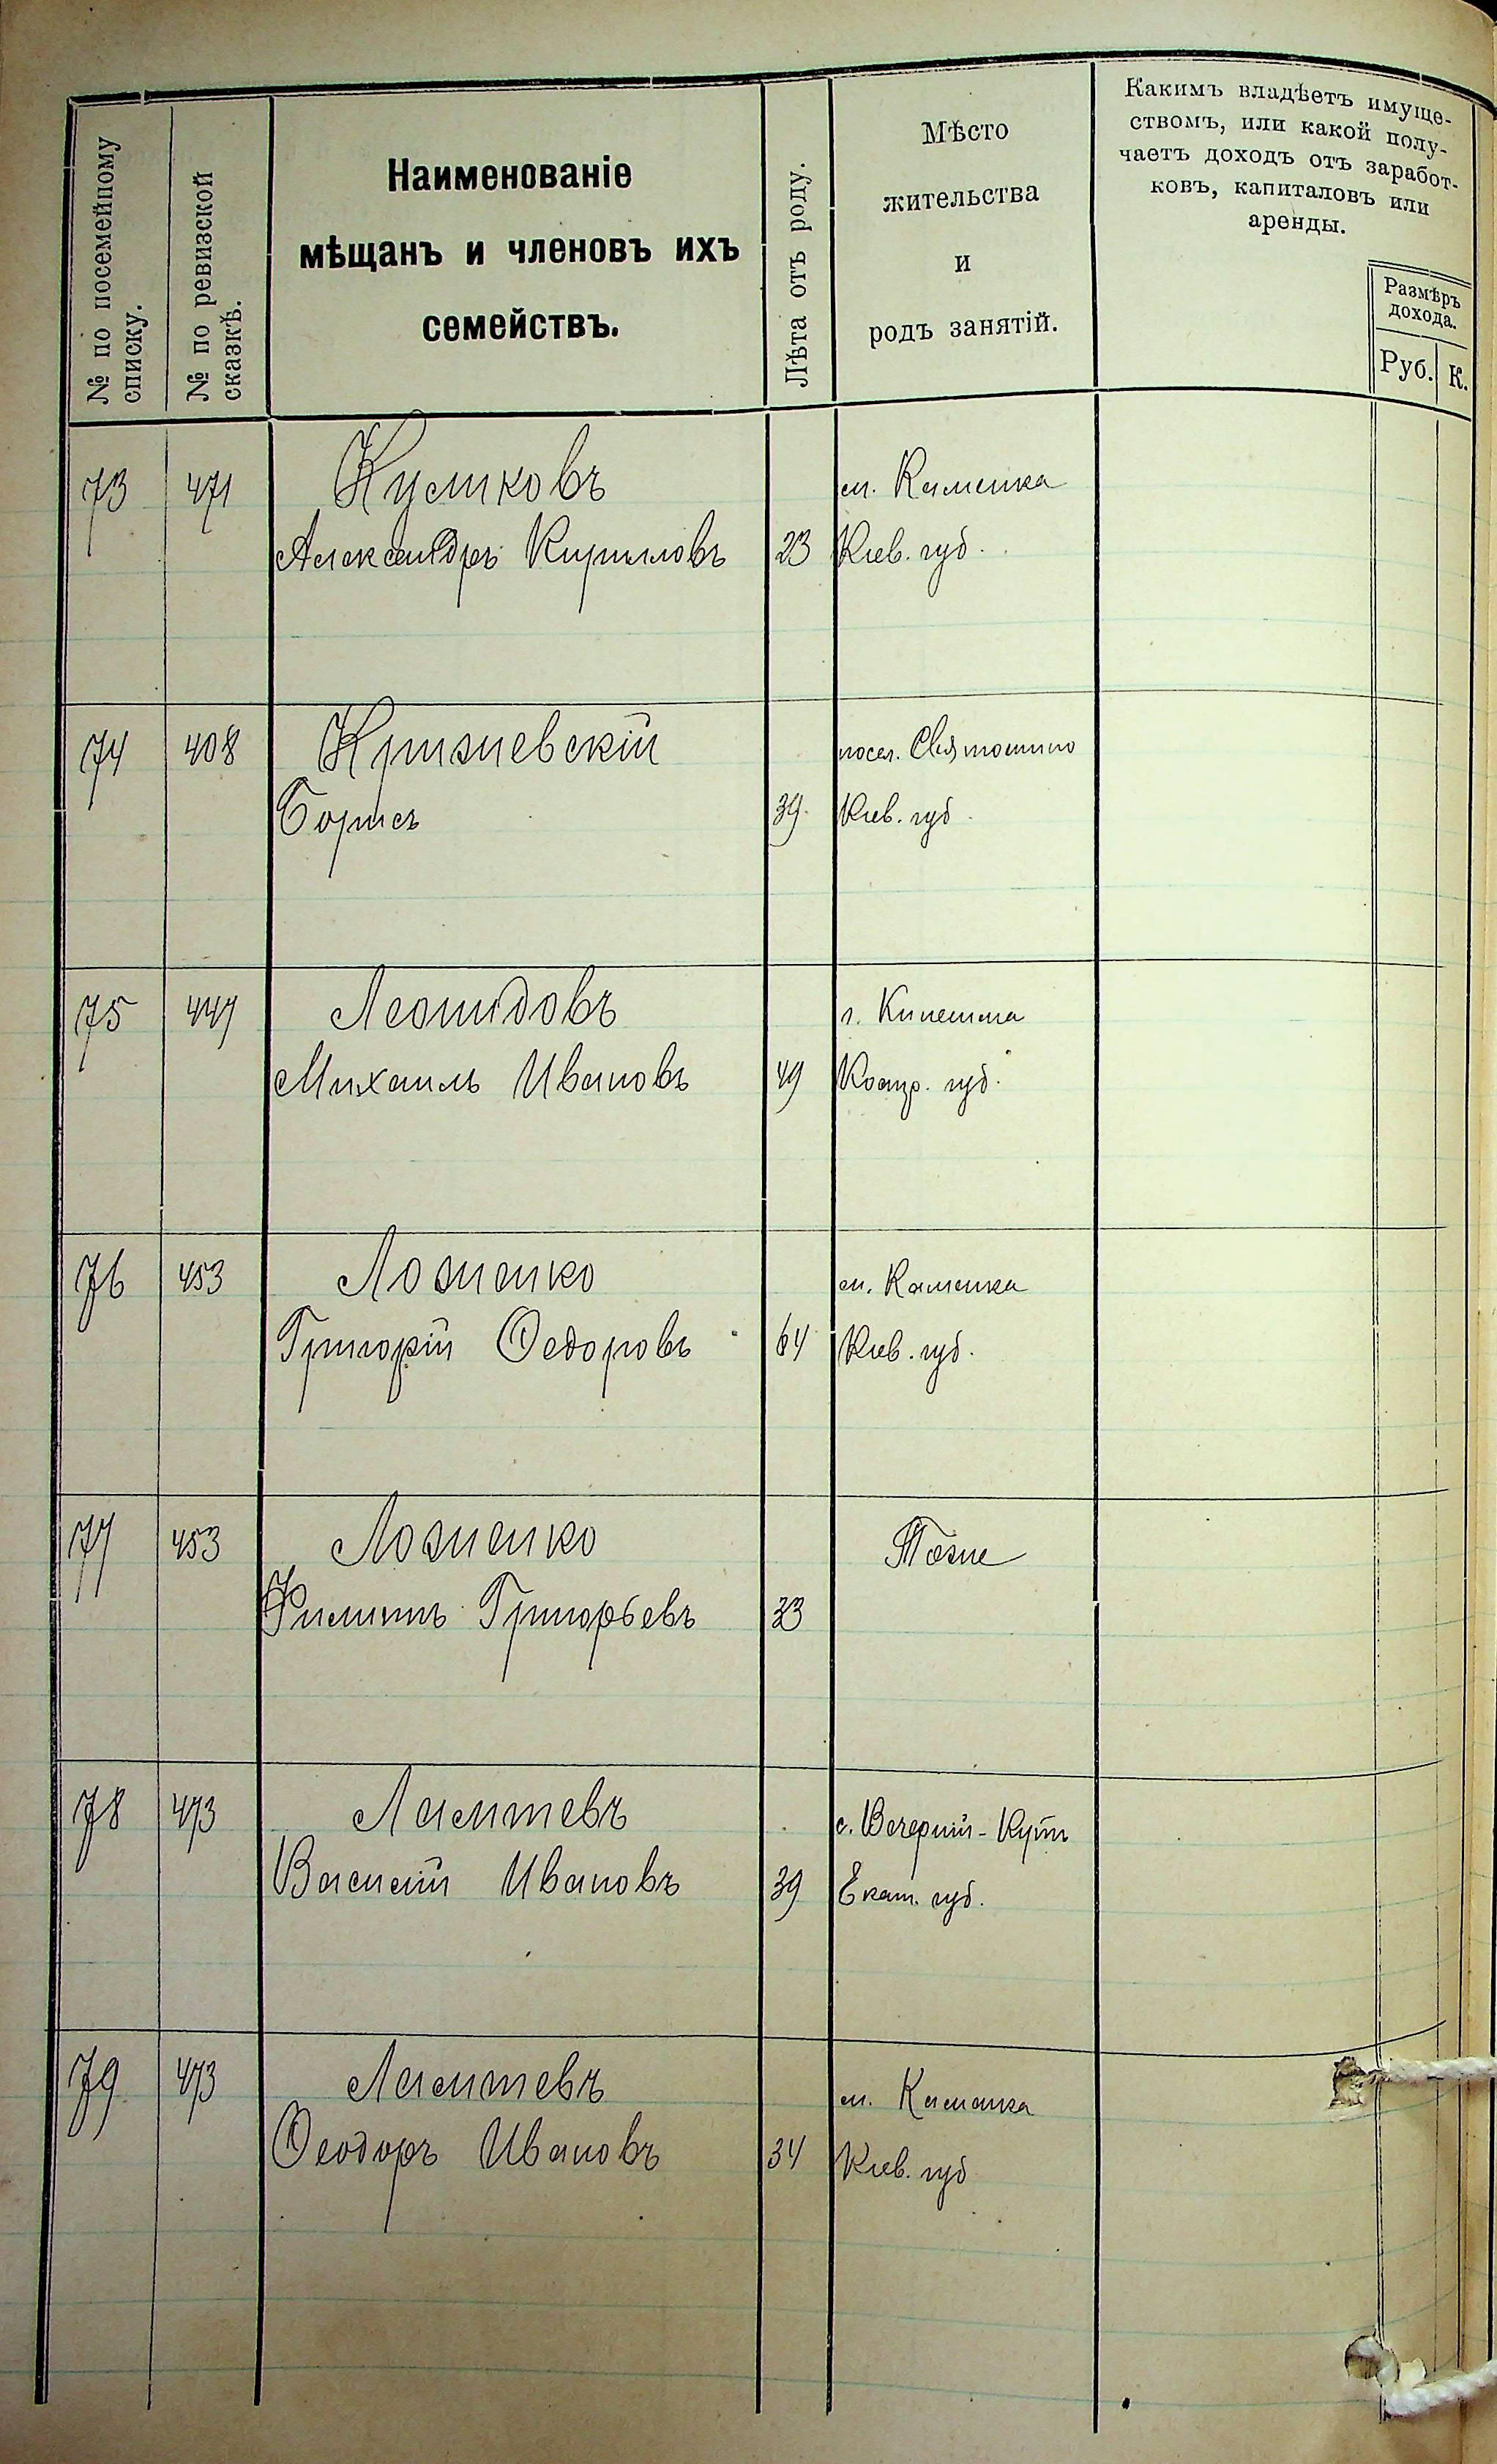 № по посемейному
списку.
№ по ревизской
сказкѣ.
Наименованіе
мѣщанъ и членовъ ихъ
семействъ.
Лѣта отъ роду.
Мѣсто
жительства
и
родъ занятій.
Какимъ владѣетъ имуще-
ствомъ, или какой полу-
чаетъ доходъ отъ заработ-
ковъ, капиталовъ или
аренды.
Размѣръ
дохода.
Руб. К.
73 471 Куликовъ м. Каменка
Александръ Кирилловъ 23 Кіев. губ.
74 408 посел. Святошино
Борисъ 39 Кіев. губ.
75 447 Леонидовъ г. Кинешма
Михаилъ Ивановъ 49 Костр. губ.
76 453 м. Каменка
Григорій Федоровъ 64 Кіев. губ.
77 453 Тоже
Филиппъ Григорьевъ 23
78 473 с. Вечерній-Кутъ
Василій Ивановъ 39 Екат. губ.
79 473 м. Каменка
Феодоръ Ивановъ 34 Кіев. губ